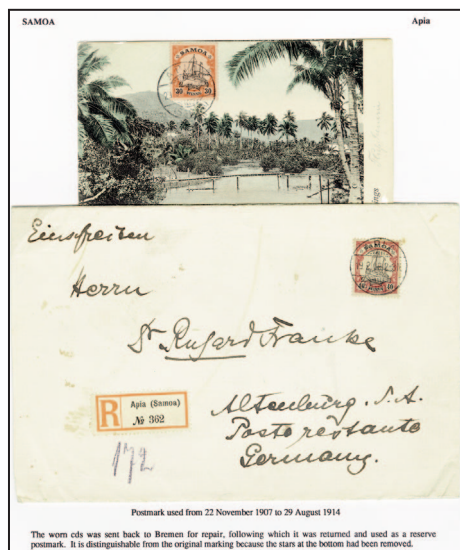 SAMOA Apia
SAMOA
30 30
Einschreiben
SAMOA
Herrn
Dr Rugard Franke
R Apia (Samoa)
№ 362
Altenburg. S. A.
Poste restante
Germany.
172
Postmark used from 22 November 1907 to 29 August 1914
The worn cds was sent back to Bremen for repair, following which it was returned and used as a reserve
postmark. It is distinguishable from the original marking because the stars at the bottom had been removed.